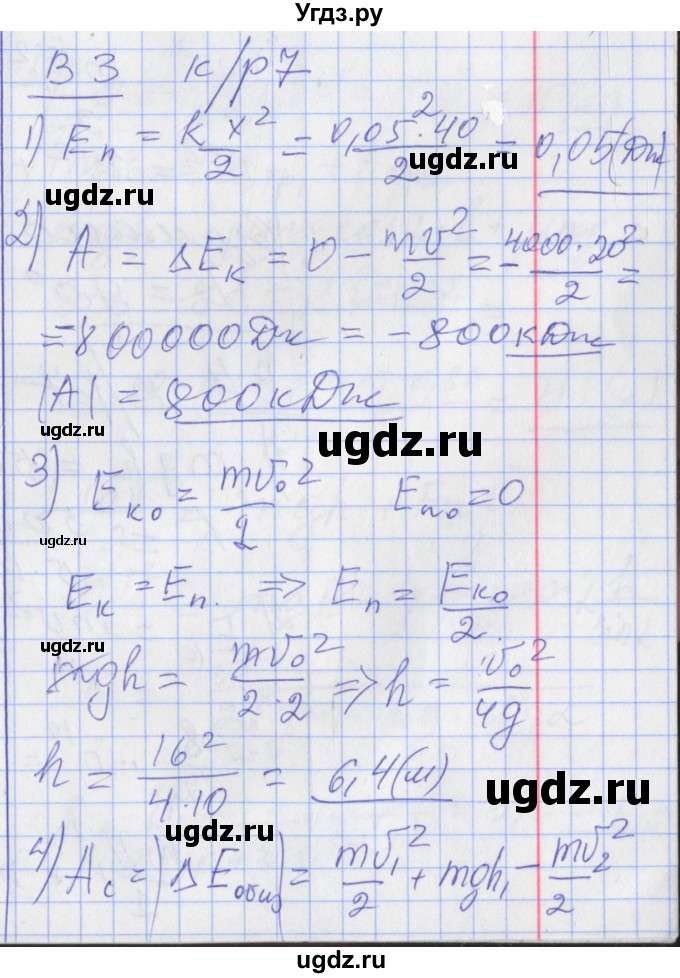 Угдз.ру
В 3 к/р 7
1) Eп = kx²/2 = 0,05²·40/2 = 0,05(Дж)
ugdz.ru ugdz.ru
2) A = ΔEк = 0 − mv²/2 = −4000·20²/2 =
ugdz.ru
= −800000Дж = −800кДж
|A| = 800кДж
ugdz.ru ugdz.ru
3) Eк₀ = mv₀²/2 Eп₀ = 0
ugdz.ru
Eк = Eп. => Eп = Eк₀/2
ugdz.ru
mgh = mv₀²/2·2 => h = v₀²/4g
h = 16²/4·10 = 6,4(м)
ugdz.ru
ugdz.ru
4) Aс = |ΔEобщ| = mv₁²/2 + mgh₁ − mv₂²/2
ugdz.ru
ugdz.ru